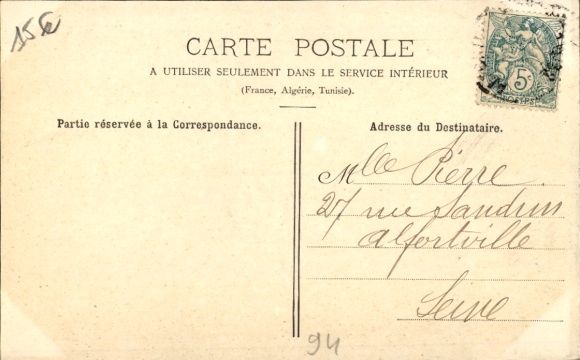 15€
CARTE POSTALE
A UTILISER SEULEMENT DANS LE SERVICE INTÉRIEUR
(France, Algérie, Tunisie).
Partie réservée à la Correspondance.
Adresse du Destinataire.
5c
Mlle Pierre
27 rue
Alfortville
Seine
94